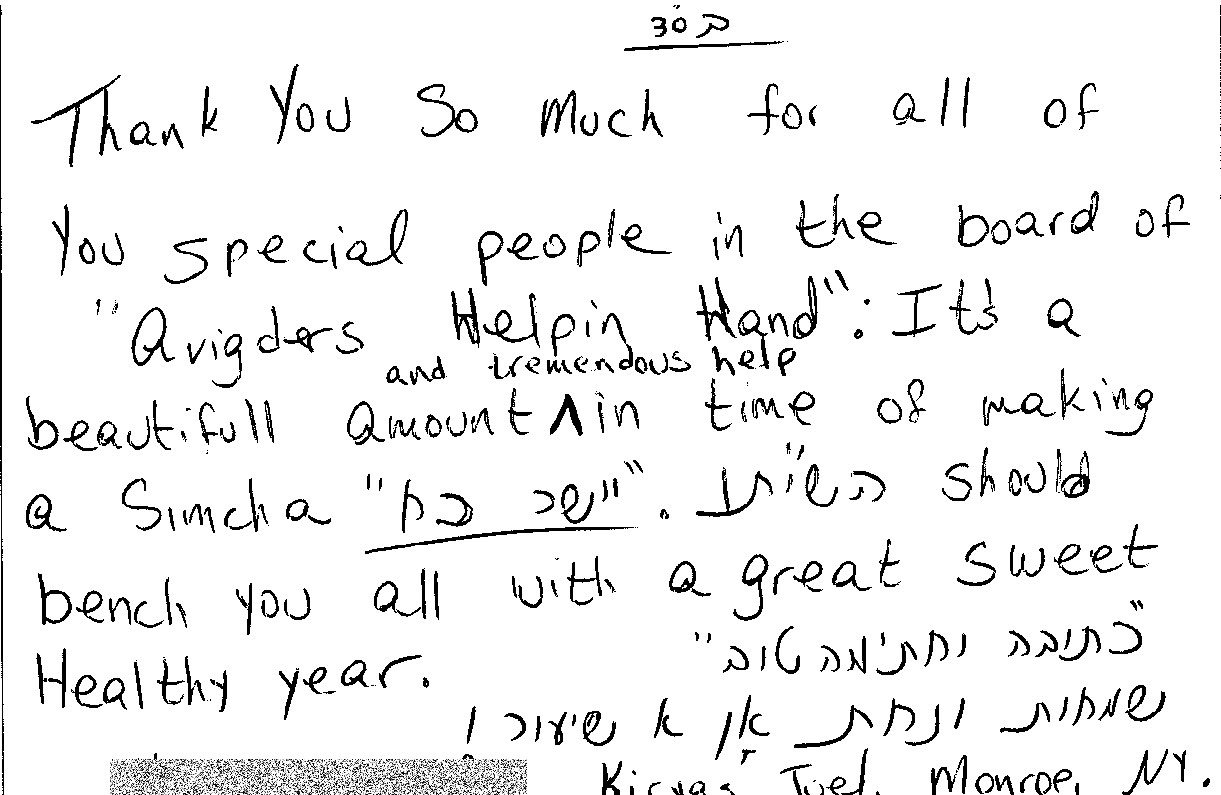 בס'ד
Thank You So Much for all of
You special people in the board of
"Avigders Helpin Hand": It's a
and tremendous help
beautifull amount ^ in time of making
a Simcha "יישר כח". השי"ת should
bench you all with a great sweet
Healthy year. "כתיבה וחתימה טוב"
שמחות ונחת אן א שיעור !
Kiryas Joel, Monroe, NY.